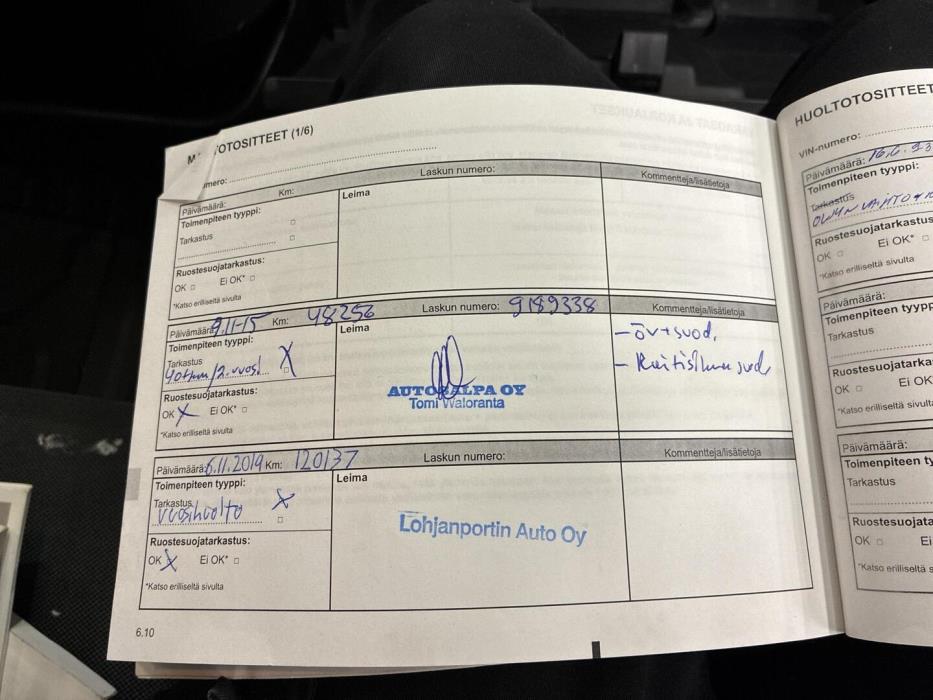 HUOLTOTOSITTEET (1/6)
Päivämäärä: Km: Laskun numero: Kommentteja/lisätietoja
Toimenpiteen tyyppi: Leima
Tarkastus
Ruostesuojatarkastus:
OK Ei OK*
*Katso erilliseltä sivulta
Päivämäärä: 9.11-15 Km: 48256 Laskun numero: 9189338 Kommentteja/lisätietoja
Toimenpiteen tyyppi: X Leima
Tarkastus
40tkm/2.vuosi
Ruostesuojatarkastus:
OK X Ei OK*
*Katso erilliseltä sivulta
AUTOSALPA OY
Tomi Waloranta
- öv+suod.
- Raitisilman suod.
Päivämäärä: 6.11.2019 Km: 120137 Laskun numero: Kommentteja/lisätietoja
Toimenpiteen tyyppi: Leima
Tarkastus X
vuosihuolto
Ruostesuojatarkastus:
OK X Ei OK*
*Katso erilliseltä sivulta
Lohjanportin Auto Oy
6.10
HUOLTOTOSITTEET
VIN-numero:
Päivämäärä: 16.6.23
Toimenpiteen tyyppi:
Tarkastus
Ruostesuojatarkastus
OK Ei OK*
*Katso erilliseltä sivulta
Päivämäärä:
Toimenpiteen typp
Tarkastus
Ruostesuojatarka
OK Ei OK
*Katso erilliseltä sivu
Päivämäärä:
Toimenpiteen ty
Tarkastus
Ruostesuojata
OK Ei
*Katso erilliseltä s